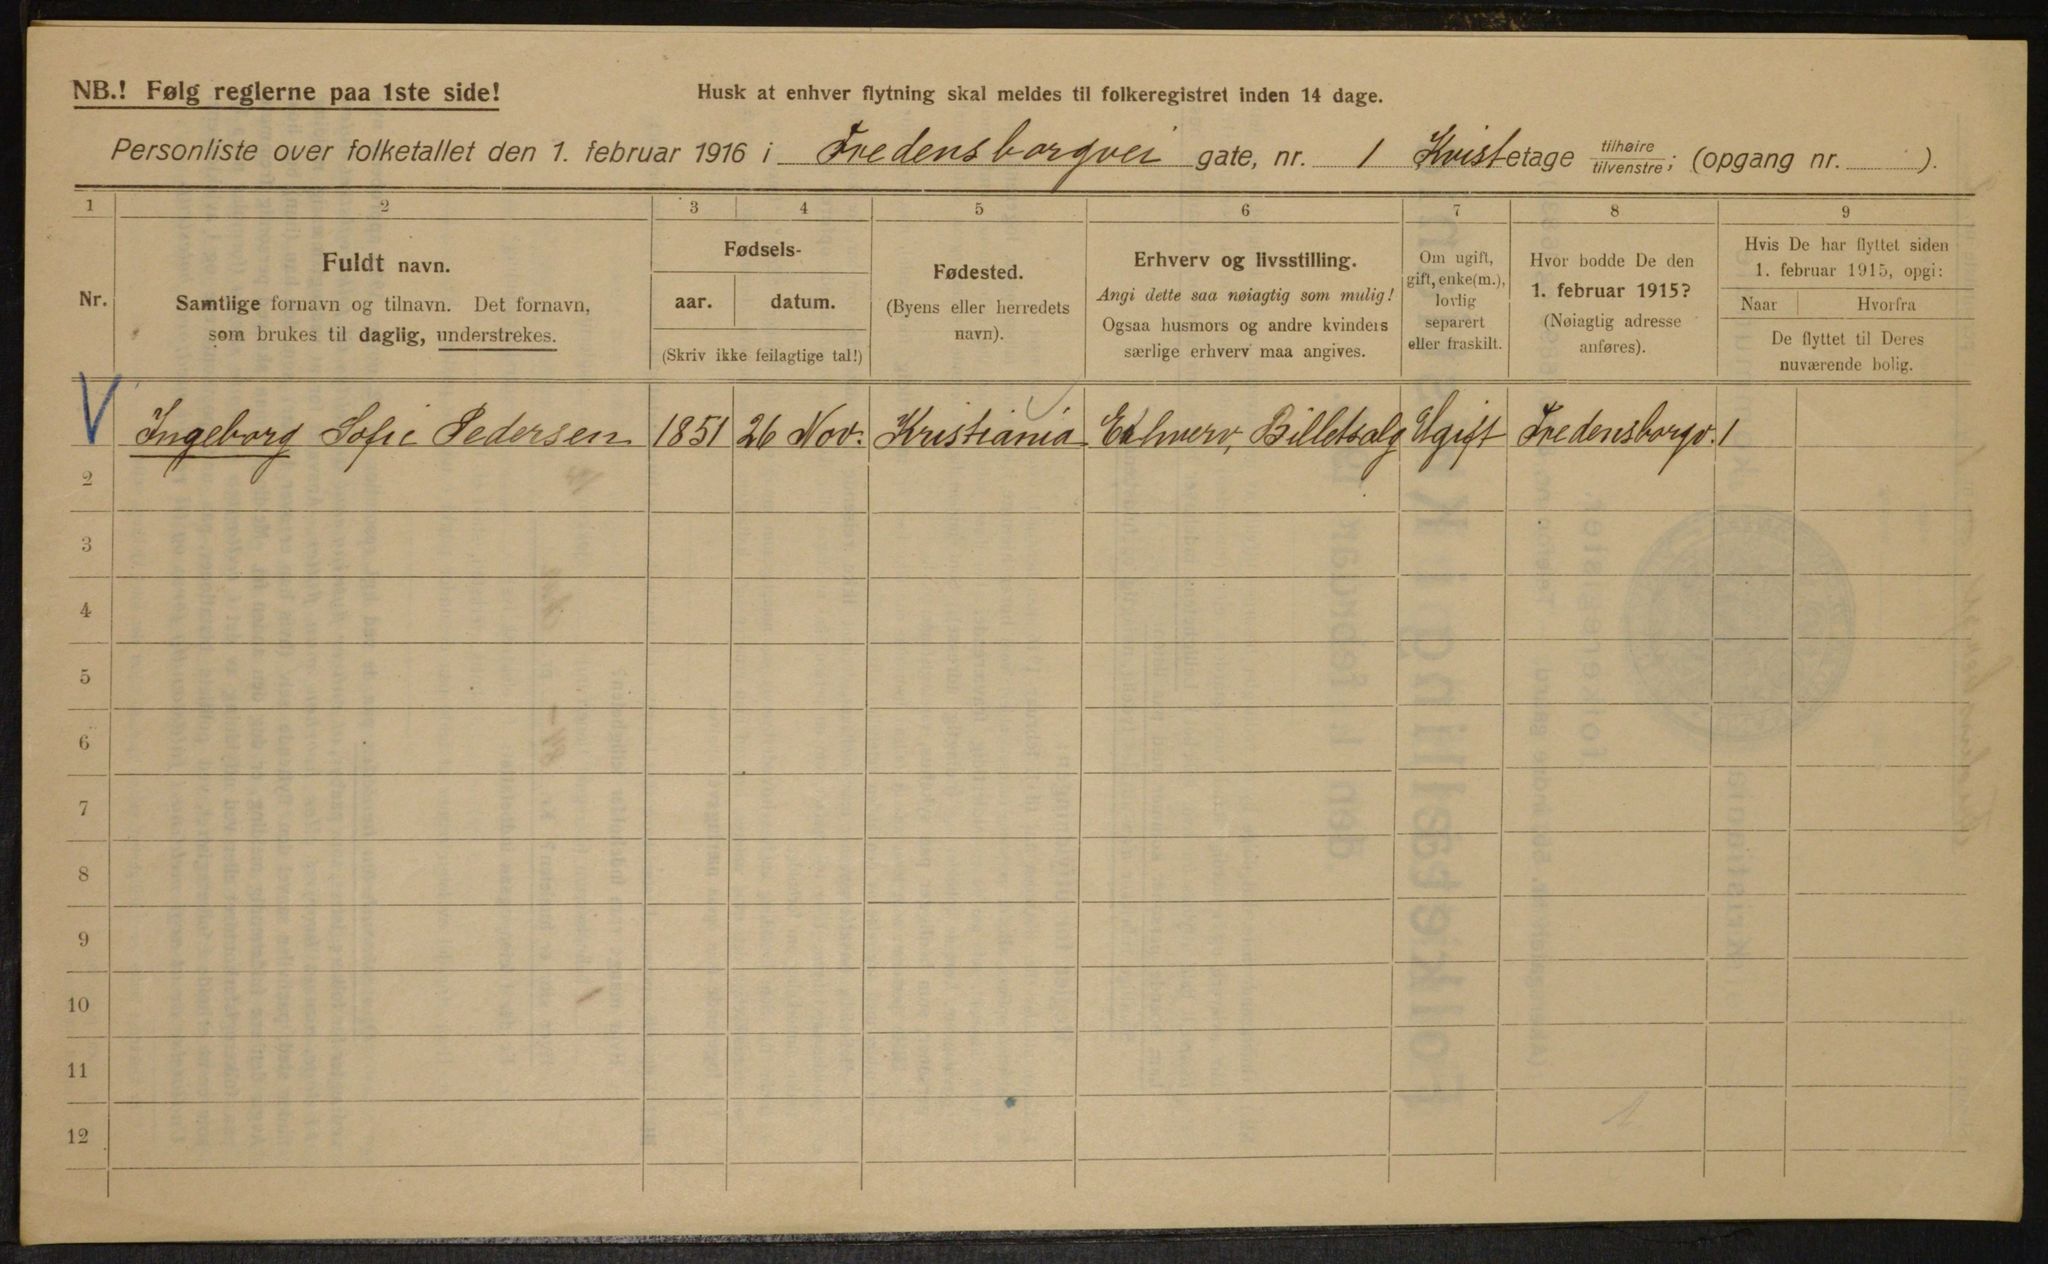 NB.! Følg reglerne paa 1ste side!
Husk at enhver flytning skal meldes til folkeregistret inden 14 dage.
Personliste over folketallet den 1. februar 1916 i Fredensborgvei gate, nr. 1 Kvist etage tilhøire/tilvenstre; (opgang nr. ).
1 2 3 4 5 6 7 8 9
Nr.
Fuldt navn.
Samtlige fornavn og tilnavn. Det fornavn,
som brukes til daglig, understrekes.
Fødsels-
aar. datum.
(Skriv ikke feilagtige tal!)
Fødested.
(Byens eller herredets
navn).
Erhverv og livsstilling.
Angi dette saa nøiagtig som mulig!
Ogsaa husmors og andre kvinders
særlige erhverv maa angives.
Om ugift,
gift, enke(m.),
lovlig
separert
eller fraskilt.
Hvor bodde De den
1. februar 1915?
(Nøiagtig adresse
anføres).
Hvis De har flyttet siden
1. februar 1915, opgi:
Naar Hvorfra
De flyttet til Deres
nuværende bolig.
Ingeborg Sofie Pedersen 1851 26 Nov. Kristiania Erhverv, Billetsalg Ugift Fredensborgv. 1
2
3
4
5
6
7
8
9
10
11
12